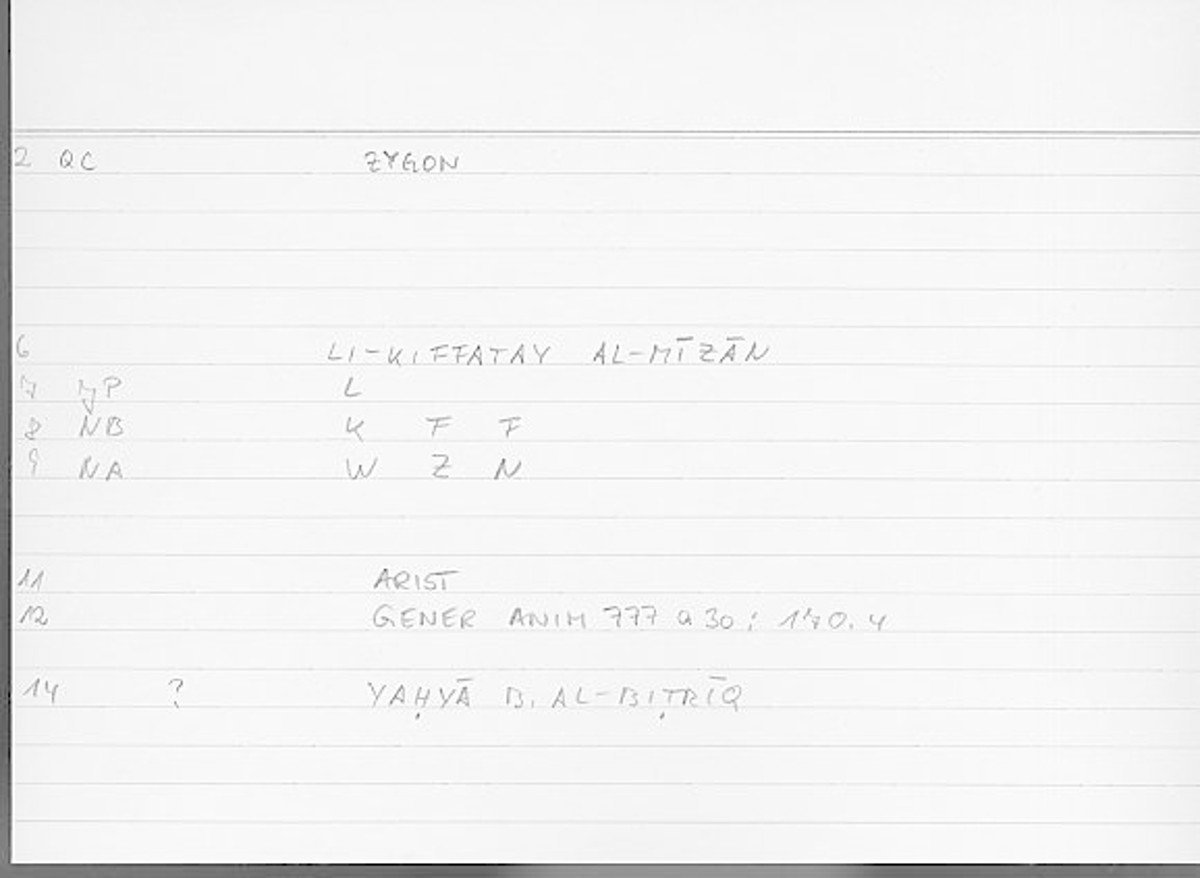 2 QC ZYGON
6 LI-KIFFATAY AL-MĪZĀN
7 JP L
8 NB K F F
9 NA W Z N
11 ARIST
12 GENER ANIM 777 a 30 ; 170. 4
14 ? YAḤYĀ B. AL-BIṬRĪQ